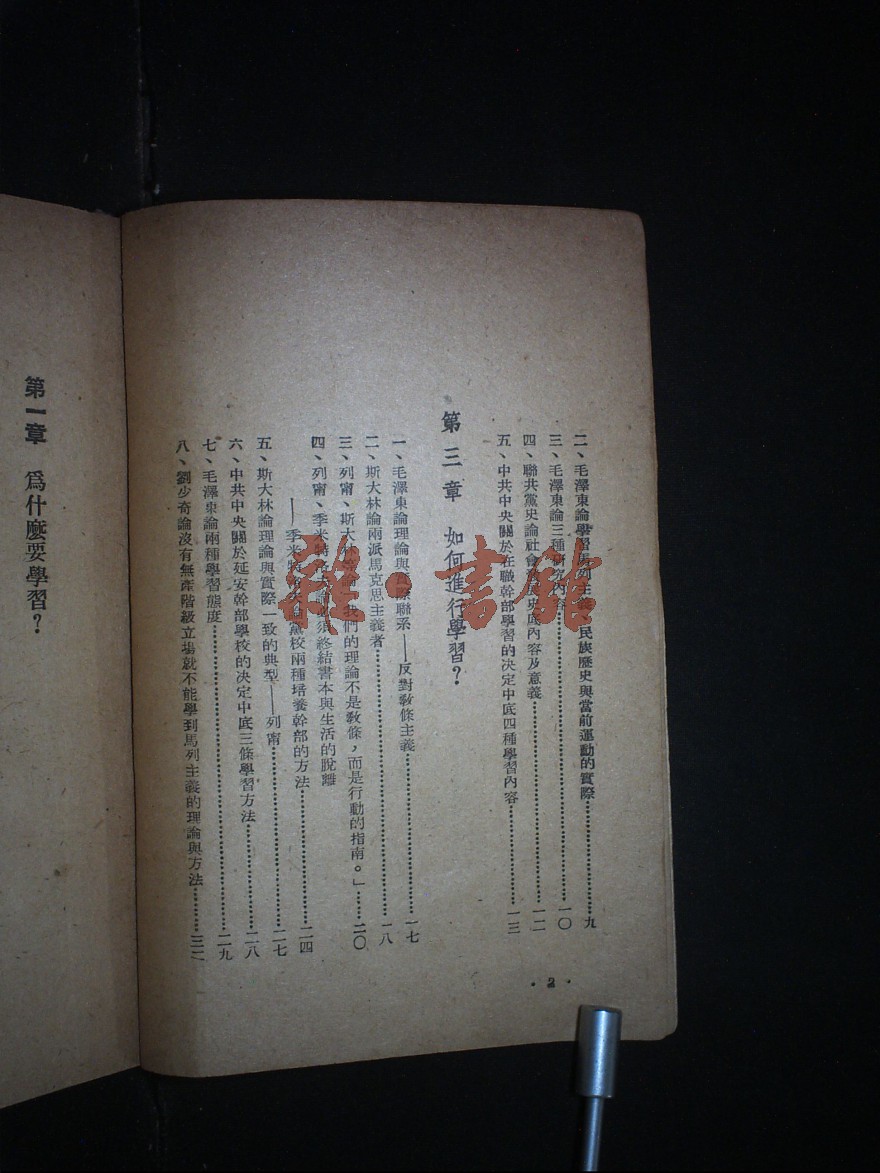 二、毛澤東論學習馬列主義、民族歷史與當前運動的實際……九
三、毛澤東論三種研究內容……一〇
四、聯共黨史論社會發展史底內容及意義……一二
五、中共中央關於在職幹部學習的決定中底四種學習內容……一三
第三章 如何進行學習？
一、毛澤東論理論與實際聯系——反對敎條主義……一七
二、斯大林論兩派馬克思主義者……一八
三、列甯、斯大林論「我們的理論不是敎條，而是行動的指南。」……二〇
四、列甯、季米特洛夫論必須終結書本與生活的脫離
——季米特洛夫論黨校兩種培養幹部的方法……二四
五、斯大林論理論與實際一致的典型——列甯……二七
六、中共中央關於延安幹部學校的決定中底三條學習方法……二八
七、毛澤東論兩種學習態度……二九
八、劉少奇論沒有無產階級立場就不能學到馬列主義的理論與方法……三
·2·
第一章 爲什麼要學習？
雜·書館